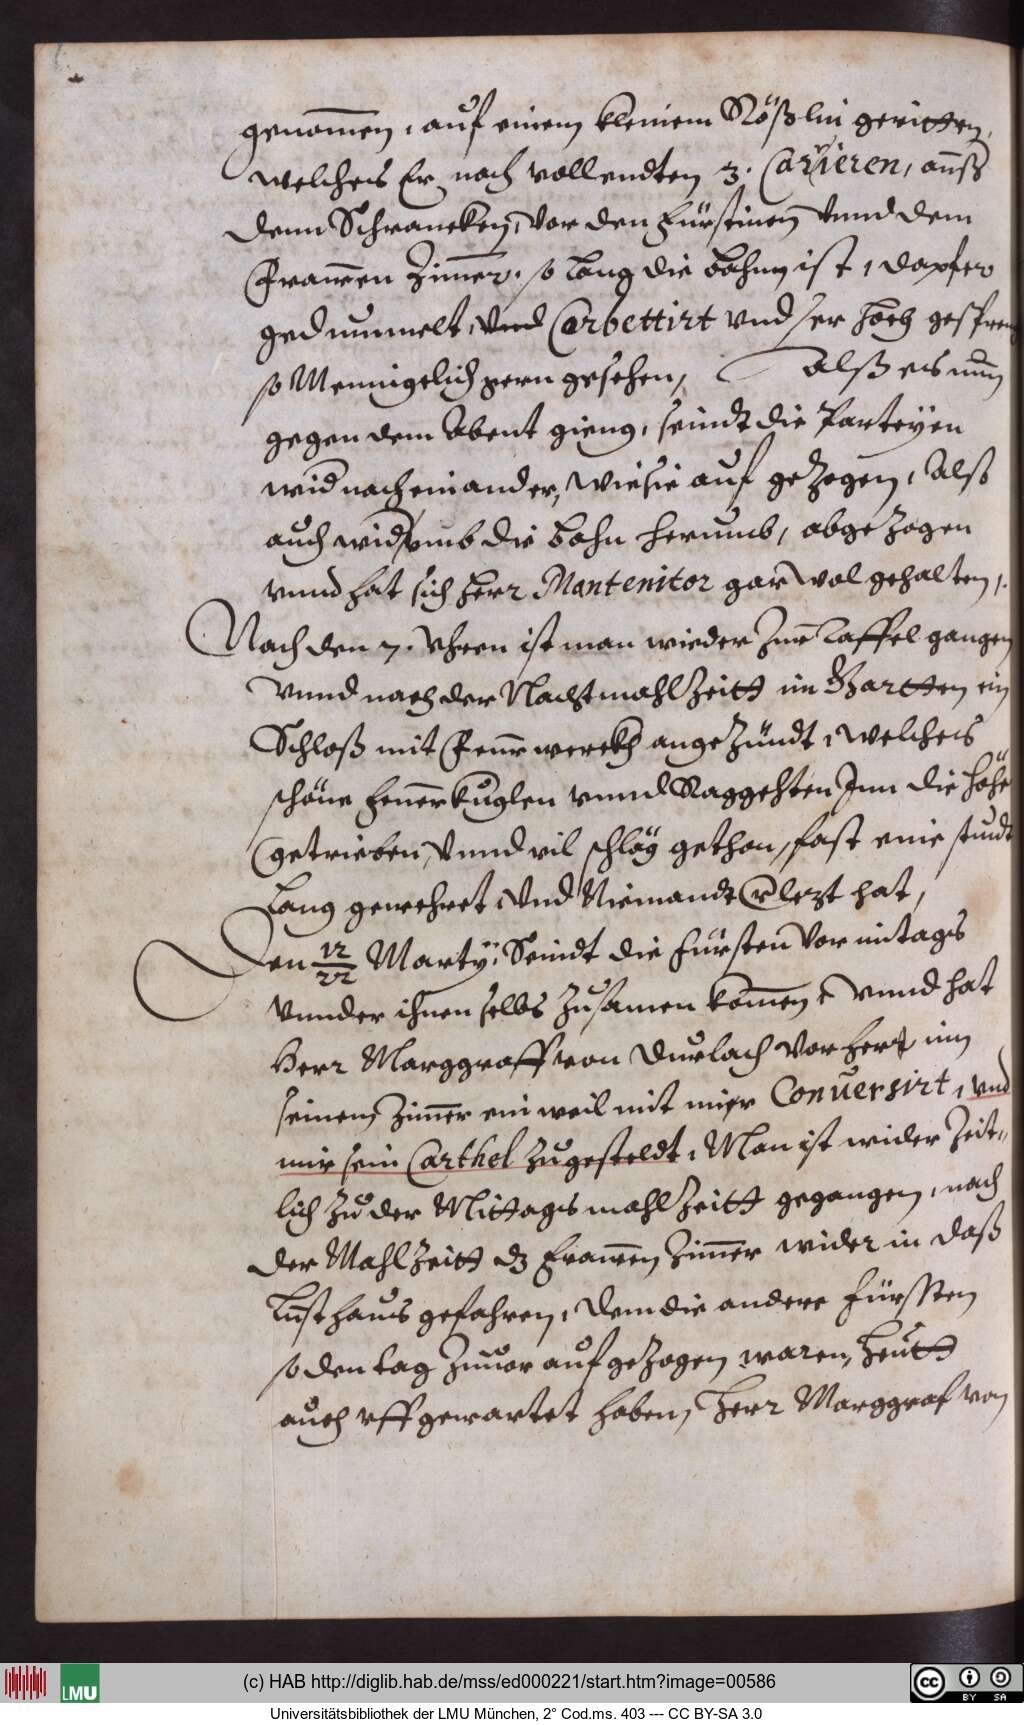 genommen, auf einem kleinem Rößlin geritten,
welches Er, nach vollendten 3. Carrieren, auß
denn Schrancken, vor den Fürstinen vnnd dem
Frawen Zimer, so lang die bahn ist, dapfer
gedummelt, vnd Corbettirt vnd ser hoch gesprengt
so Meningelich gern gesehen, Alß es nun
gegen dem Abent gieng, seindt die Parteÿen
wid nach einander, wie sie auf gezogen, Alß
auch wid vmb die bahn herumb, abgezogen
vnnd hat sich Herr Mantenitor gar wol gehalten,
Nach den 7. Vhren ist man wieder zur Taffel gangen
vnnd nach der Nachtmahlzeitt im Gartten ein
Schloß mit Feurwerckh angezündt, welches
schöne Feuerkuglen vnnd Raggehten Inn die höhe
getrieben, vnnd vil schläg gethon, fast eine stundt
Lang gewehret, vnd Niemandt verlezt hat,
Den 12/22 Martÿ, Seindt die Fürsten vormitags
vnnder ihnen selbs zusamen komen, vnnd hat
Herr Marggraff von Durlach vorhero inn
seinem Zimer ein weil mit mir Conuersirt, vnd
mir sein Carthel zugesteldt, Man ist wider zeit-
lich zu der Mittagsmahlzeitt gegangen, nach
der Mahlzeitt dz Frawen Zimer wider in daß
Lusthaus gefahren, dem die andere Fürsten
so den tag zuuor aufgezogen waren, heutt
auch vffgewartet haben, Herr Marggraf von
(c) HAB http://diglib.hab.de/mss/ed000221/start.htm?image=00586
LMU
CC BY SA
Universitätsbibliothek der LMU München, 2° Cod.ms. 403 --- CC BY-SA 3.0